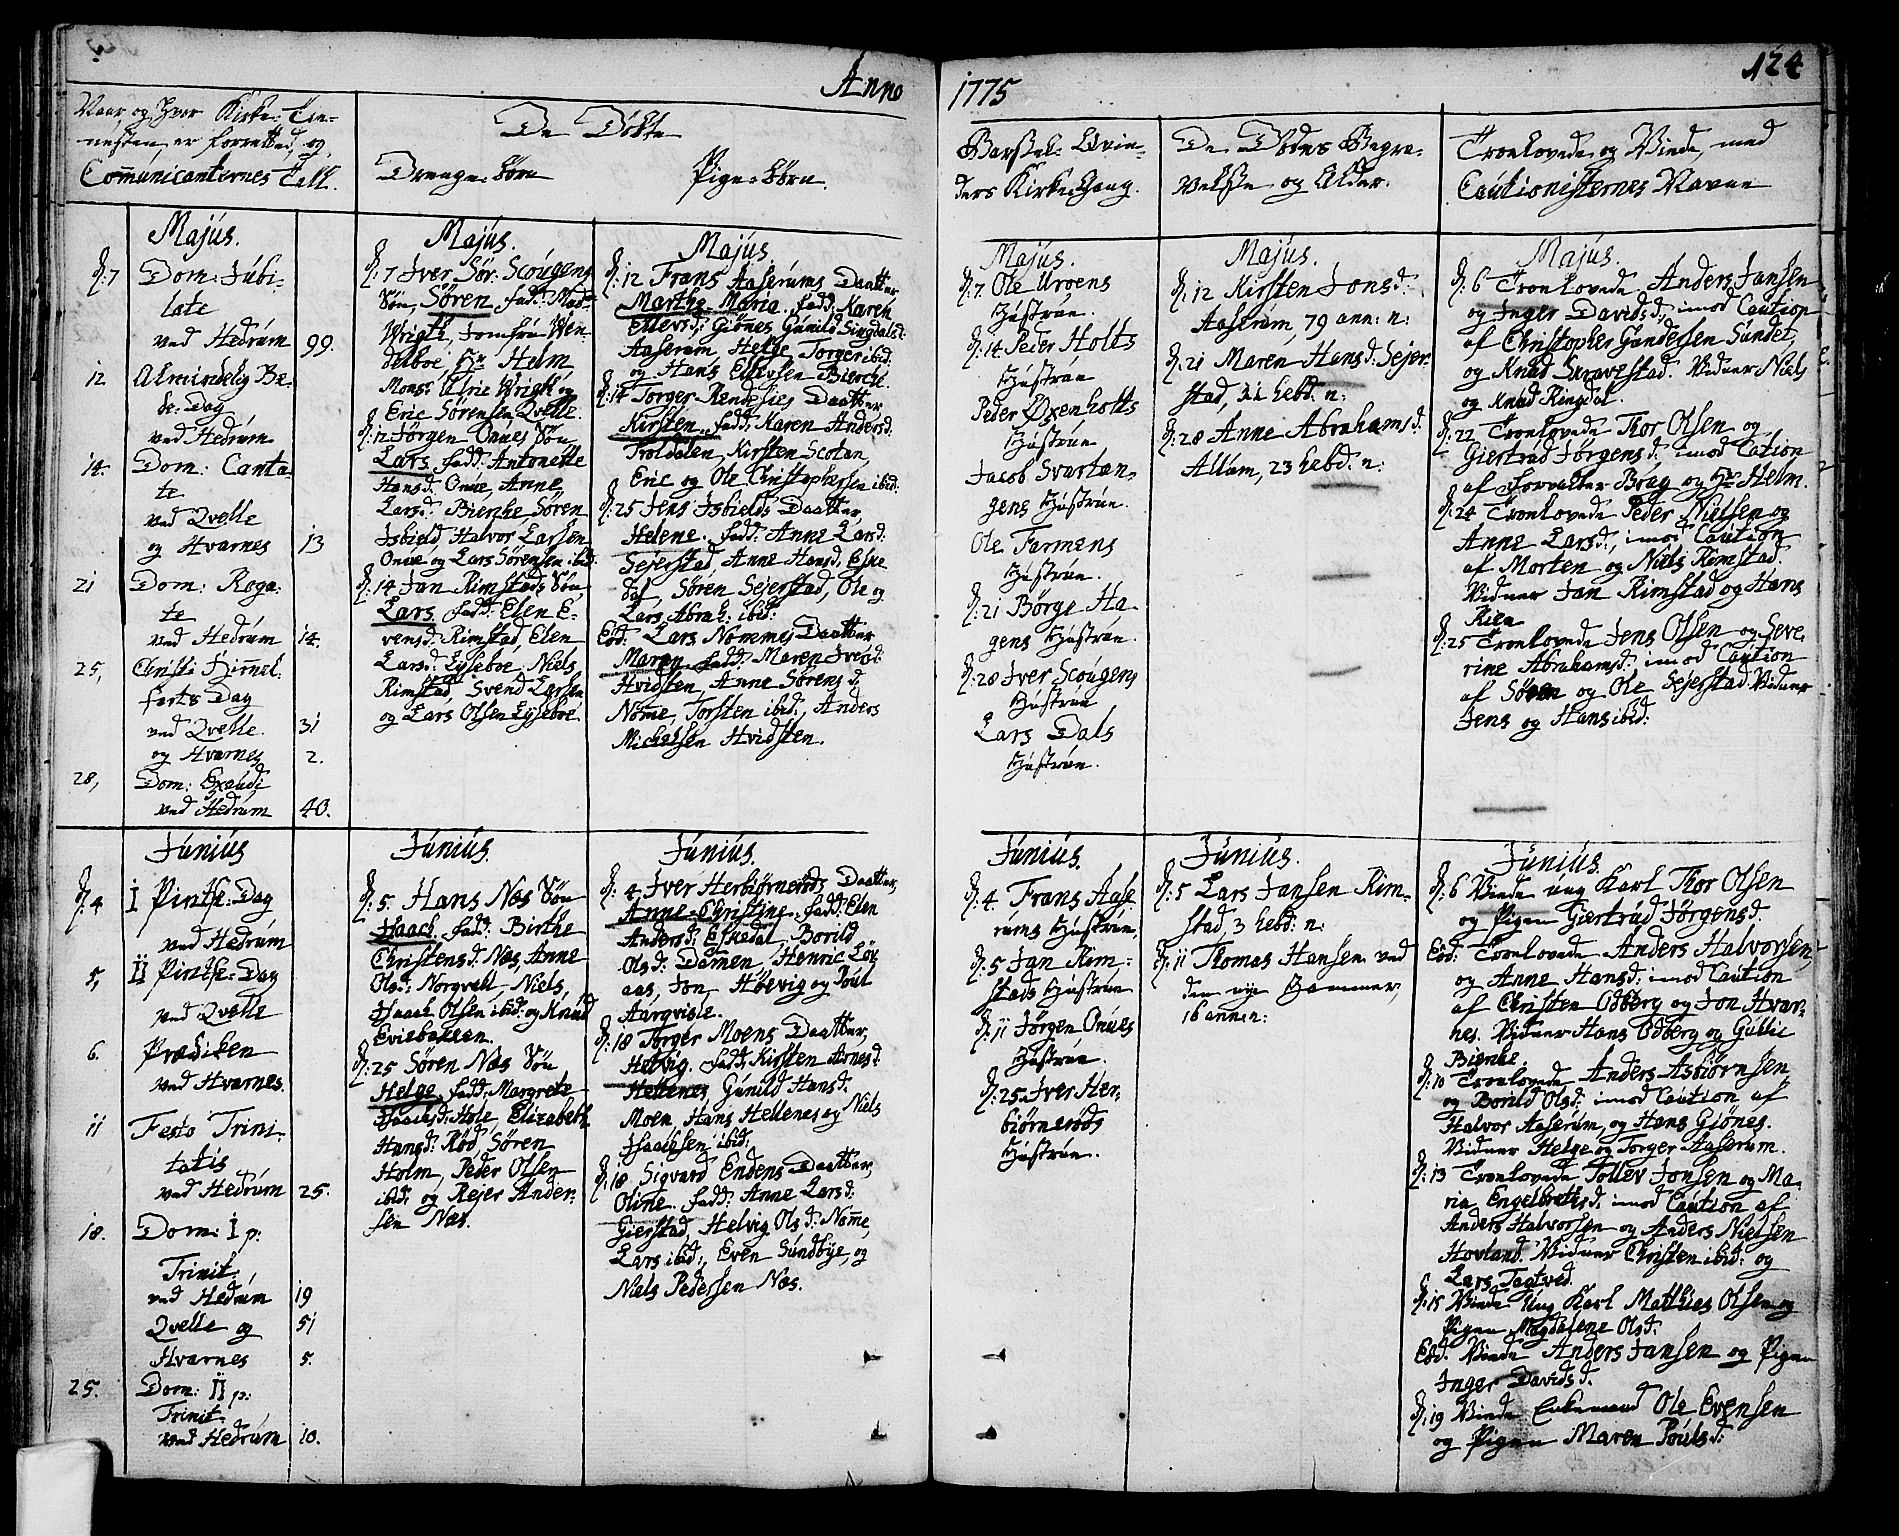 Anno
1775
124
Naar og hvor Kirke-Tie-
nesten er forrettet, og
Communicanternes Tall.
De Døbte
Drenge-Børn
Pige-Børn.
Barsel-Qvin-
ders Kirke-Gang.
De Dødes Begra-
velse og Alder.
Troelovede og Viede, med
Cautionisternes Navne
Majus.
d: 7 Dom: Jubi-
late
ved Hedrum 99.
12 Almindelig Be-
de-Dag
ved Hedrum
14. Dom: Canta-
te
ved Qvelle
og Hvarnes 13
21 Dom: Roga-
te
ved Hedrum 14.
25, Christi Himmel-
farts Dag
ved Qvelle 31
og Hvarnes 2.
28, Dom: Exaudi
ved Hedrum 40.
Majus.
d: 7 Iver Sør: Scougens
Søn, Søren fadd: Mad:
Wright, Jomfru Wen-
delboe, Hr Helm,
Mons: Ulric Wright og
Eric Sørensen Qvelle.
d: 12 Jørgen Onnes Søn
Lars. fadd: Antonette
Hansd: Onne, Anne
Larsd: Bienke Søren
Isbield Halvor Larsen
Onne og Lars Sørensen ibid:
d: 14 Jan Rimstads Søn
Lars. fadd: Elen E-
vensd: Rimstad, Elen
Larsd: Lyseboe, Niels
Rimstad, Svend Larsen
og Lars Olsen Lyseboe.
Majus.
d: 12 Frans Aaserums Daatter
Marthe Maria. fadd: Karen
Ellevsd: Giønes Gunild Sirgdalsd:
Aaserum, Helge, Torger ibid:
og Hans Ellevsen Bierche.
d: 14 Torger Rendelies Daatter
Kirsten. fadd: Karen Andersd:
Troldalen, Kirsten Scotan,
Eric og Ole Christophersen ibid:
d: 25 Jens Isbields Daatter
Helene. fadd: Anne Larsd:
Sejerstad, Anne Hansd: Eske
dal, Søren Sejerstad, Ole og
Lars Abrah: ibid:
Eod: Lars Nommes Daatter
Maren. fadd: Maren Iversd:
Hvidsten, Anne Sørensd:
Nome, Torsten ibid:, Anders
Michelsen Hvidsten.
Majus.
d: 7. Ole Uroens
Hustrue.
d: 14 Peder Holts
Hustrue
Peder Øxenholts
Hustrue
Jacob Svartan-
gens Hustrue.
Ole Farmens
Hustrue.
d: 21 Børge Ha-
gens Hustrue.
d: 28 Iver Scougens
Hustrue
Lars Dals
Hustrue.
Majus.
d: 12 Kirsten Jonsd:
Aaserum, 79 ann: n:
d: 21 Maren Hansd: Sejer-
stad, 31 hebd: n:
d: 28 Anne Abrahamsd:
Allum, 23 hebd: n:
Majus.
d: 6 Troelovede Anders Jansen
og Inger Davidsd:, imod Caution
af Christopher Gundersen Sundet,
og Knud Skravestad. Vidner Niels
og Knud Ringdal.
d: 22 Troelovede Thor Olsen og
Giertrud Jørgensd: imod Cation
af Forvalter Brag og Hr Helm.
d: 24 Troelovede Peder Nielsen og
Anne Larsd:, imod Caution
af Morten og Niels Rimstad.
Vidner Jan Rimstad og Hans
Riea
d: 25 Troelovede Jens Olsen og Seve-
rine Abrahamsd: imod Caution
af Søren og Ole Sejerstad. Vidner
Jens og Hans ibid:
Junius
d: 4 I Pintse-Dag
ved Hedrum
5, II Pintse-Dag
ved Qvelle
6. Prædiken
ved Hvarnes.
11 Festo Trini-
tatis
ved Hedrum 25.
18. Dom: I p:
Trinit:
ved Hedrum 19
Qvelle og 51
Hvarnes 5.
25. Dom: II p:
Trinit:
ved Hedrum 10.
Junius.
d: 5. Hans Næs Søn
Isaach. fadd: Birthe
Christensd: Næs, Anne
Olsd: Norgvelt, Niels,
Isaach Olsen ibid: og Knud
Eviebakken.
d: 25 Søren Næs Søn
Helge. fadd: Margrete
Isaachsd: Hole, Elizabeth
Hansd: Rød Søren
Holm, Peder Olsen
ibid: og Rejer Ander-
sen Næs.
Junius.
d: 4 Iver Herbiørnerøds Daatter,
Anne Christine. fadd: Elen
Andersd: Eskedal, Borild
Olsd: Damen, Henric Løv-
aas, Jon Høevig og Poul
Aarqvisle.
d: 18 Torger Moens Daatter,
Helvig. fadd: Kirsten Arnesd:
Hellenes, Gunild Hansd:
Moen, Hans Hellenes og Niels
Isaachsen, ibid:
d: 18, Sigvard Endens Daatter,
Oline. fadd: Anne Larsd:
Gierstad, Helvig Olsd: Nome,
Lars ibid:, Even Sundbye, og
Niels Pedersen Næs.
Junius.
d: 4. Frans Aase
rums Hustrue,
d: 5 Jan Rim-
stads Hustrue
d: 11 Jørgen Onnes
Hustrue.
d: 25. Iver Her-
biørnerøds
Hustrue.
Junius.
d: 5 Lars Jansen Rim-
stad, 3 hebd: n:
d: 11 Thomas Hansen ved
den nye Hammer,
16 ann: n:
Junius.
d: 6 Viede ung Karl Thor Olsen
og Pigen Giertrud Jørgensd.
Eod: Troelovede Anders Halvorsen,
og Anne Hansd: imod Caution
af Christen Odberg og Jon Hvar-
nes. Vidner Hans Odberg og Gullic
Bienke.
d: 10 Troelovede Anders Asbiørnsen
og Borild Olsd: imod Caution af
Halvor Aaserum, og Hans Giønes.
Vidner Helge og Torger Aaserum.
d: 13 Troelovede Tollev Jonsen og Ma-
ria Engelbrethsd: imod Caution af
Anders Halvorsen og Anders Nielsen
Hovland. Vidner Christen ibid: og
Lars Tagtved.
d: 15 Viede Ung Karl Mathies Olsen og
Pigen Magdalene Olsd:
Eod. Viede Anders Jansen og Pigen
Inger Davidsd.
d: 19 Viede Enkemand Ole Evensen
og Pigen Maren Poulsd: